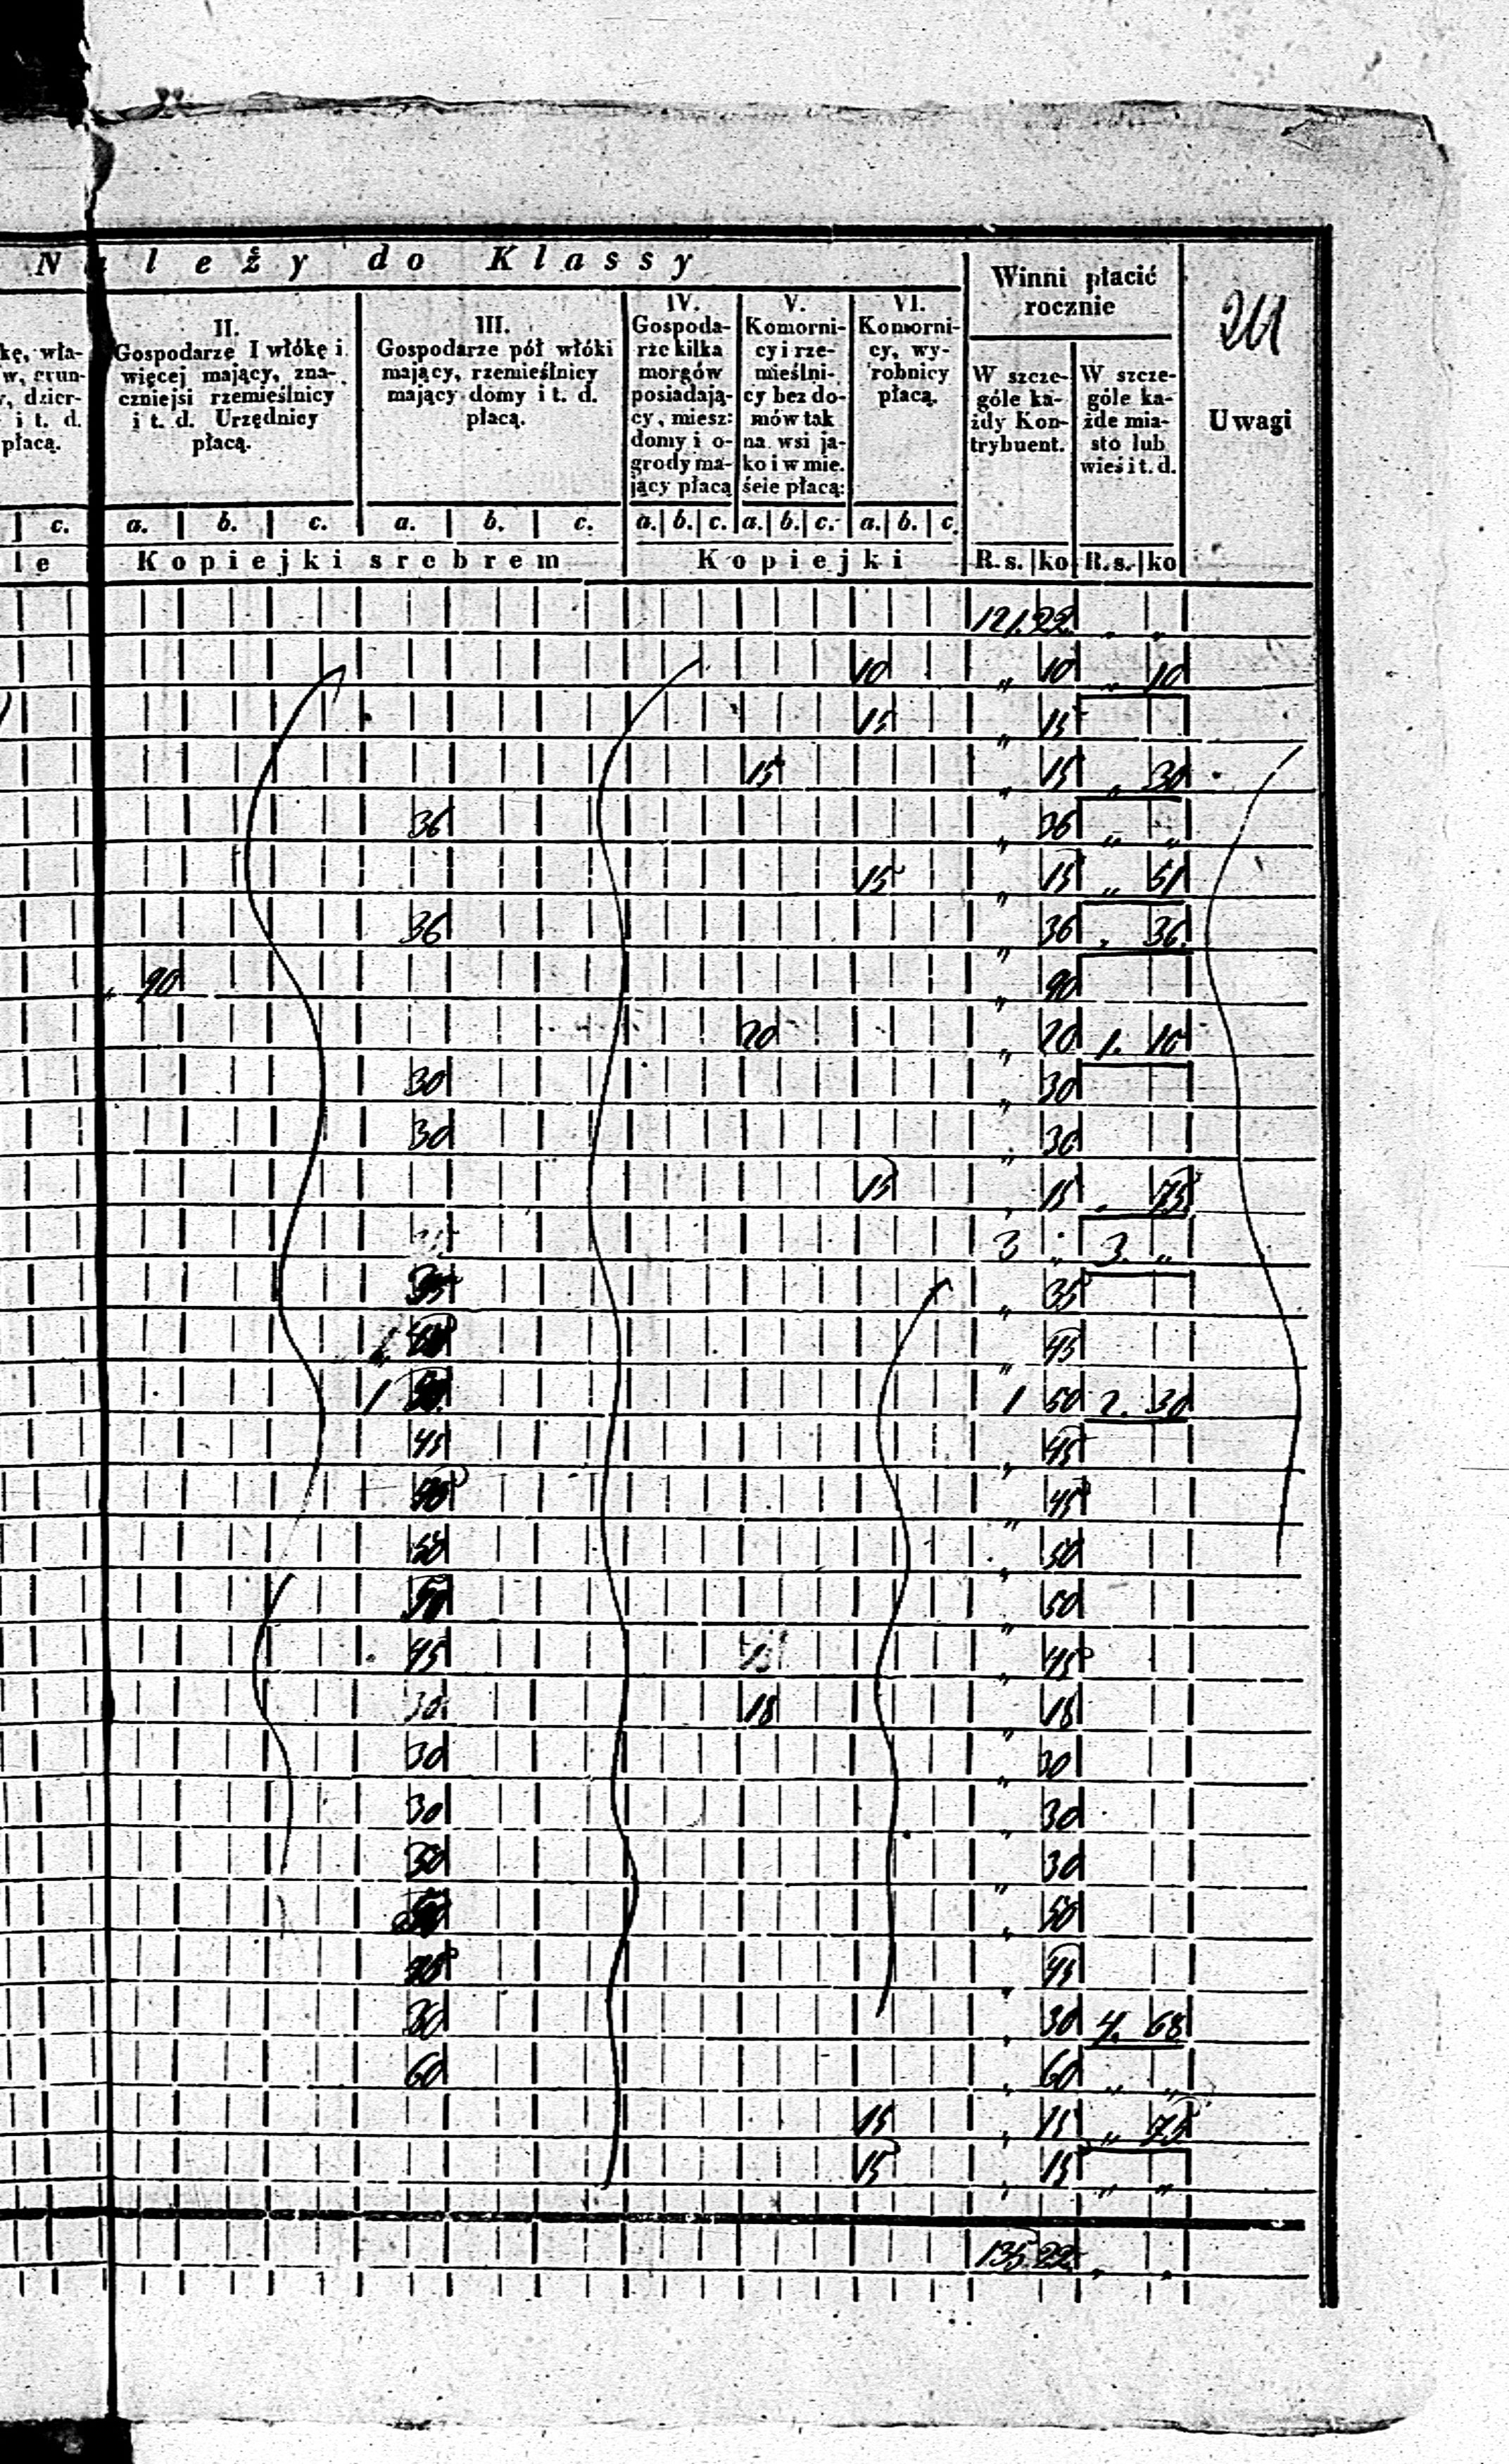 Należy do Klassy
Winni płacić rocznie
241
Uwagi
kę, wła-
w, grun-
y, dzier-
i t. d.
płacą.
II.
Gospodarze I włókę i
więcej mający, zna-
czniejsi rzemieślnicy
i t. d. Urzędnicy
płacą.
III.
Gospodarze pół włóki
mający, rzemieślnicy
mający domy i t. d.
płacą.
IV.
Gospoda-
rze kilka
morgów
posiadają-
cy, miesz:
domy i o-
grody ma-
jący płacą
V.
Komorni-
cy i rze-
mieślni-
cy bez do-
mów tak
na wsi ja-
ko i w mie.
ście płacą:
VI.
Komorni-
cy, wy-
robnicy
płacą.
W szcze-
góle ka-
żdy Kon-
trybuent.
W szcze-
góle ka-
żde mia-
sto lub
wieś i t. d.
c. a. b. c. a. b. c. a. b. c. a. b. c. a. b. c.
le Kopiejki srebrem Kopiejki R. s. ko R. s. ko
121. 22 „ „
10 „ 10 „ 10
15 „ 15
15 „ 15 „ 30
36 „ 36 „ „
15 „ 15 „ 51
36 „ 36 „ 36
„ 90 „ 90
20 „ 20 1. 10
30 „ 30
30 „ 30
15 „ 15 „ 75
3 „ 3. „
35 „ 35
„ 45
1 50 1 50 2. 30
45 „ 45
„ 45
50 „ 50
50 „ 50
45 15 „ 45
30 18 „ 18
30 „ 30
30 „ 30
30 „ 30
„ 50
„ 45
30 „ 30 4. 68
60 „ 60 „ „
15 „ 15 „ 75
15 „ 15 „ „
135 22 „ „